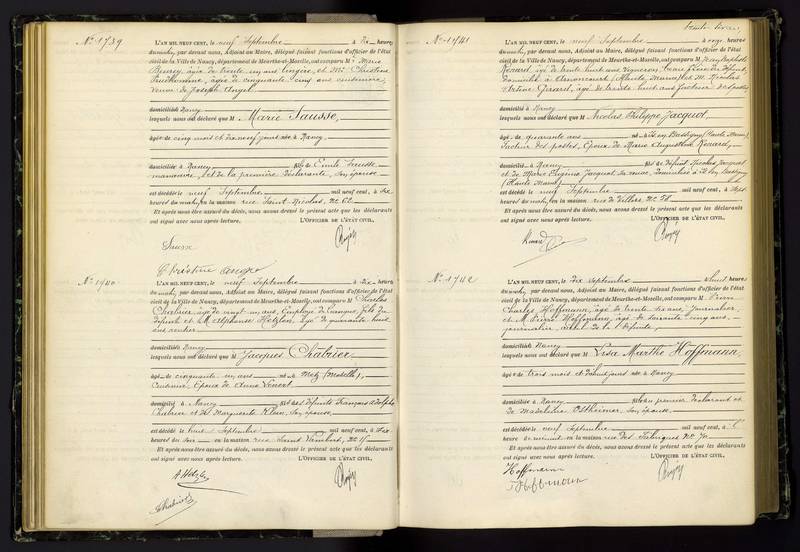 No 1739
L'AN MIL NEUF CENT, le neuf Septembre à dix heures
du matin, par devant nous, Adjoint au Maire, délégué faisant fonctions d'officier de l'état
civil de la Ville de Nancy, département de Meurthe-et-Moselle, ont comparu M Marie
âgée de trente un ans, lingère, et Me Christine
âgée de cinquante cinq ans
veuve de Joseph Angel
domiciliés Nancy
lesquels nous ont déclaré que M Marie Sausse,
âgée de cinq mois et dix neuf jours née à Nancy
domiciliée à Nancy fille de Emile Sausse
manoeuvre, et de la première déclarante, son épouse
est décédée le neuf Septembre mil neuf cent, à six
heures du matin, en la maison rue Saint Nicolas, No 62
Et après nous être assuré du décès, nous avons dressé le présent acte que les déclarants
ont signé avec nous après lecture. L'OFFICIER DE L'ÉTAT CIVIL,
Sausse
Christine
No 1740
L'AN MIL NEUF CENT, le neuf Septembre à dix heures
du matin, par devant nous, Adjoint au Maire, délégué faisant fonctions d'officier de l'état
civil de la Ville de Nancy, département de Meurthe-et-Moselle, ont comparu M Charles
Chabrier, âgé de vingt un ans, Employé de banque, fils du
défunt et M Alphonse âgé de quarante huit
ans, rentier
domiciliés Nancy
lesquels nous ont déclaré que M Jacques Chabrier,
âgé de cinquante un ans né à Metz (Moselle),
Epoux de Anna
domicilié à Nancy fils des défunts François Adolphe
Chabrier et de Marguerite Klein, son épouse
est décédé le huit Septembre mil neuf cent, à dix
heures du soir en la maison rue Saint
Et après nous être assuré du décès, nous avons dressé le présent acte que les déclarants
ont signé avec nous après lecture. L'OFFICIER DE L'ÉTAT CIVIL,
Chabrier
No 1741
L'AN MIL NEUF CENT, le neuf Septembre à onze heures
du matin, par devant nous, Adjoint au Maire, délégué faisant fonctions d'officier de l'état
civil de la Ville de Nancy, département de Meurthe-et-Moselle, ont comparu M Jean Baptiste
Renard, âgé de trente huit ans, vigneron, beau frère du défunt,
domicilié à (Haute Marne) et M Nicolas
Girard, âgé de trente huit ans facteur des postes,
domicilié à Nancy
lesquels nous ont déclaré que M Nicolas Philippe Jacquot,
âgé de quarante ans né à Is en Bassigny (Haute Marne)
facteur des postes, Epoux de Marie Augustine Renard,
domicilié à Nancy fils de défunt Nicolas Jacquot
et de Marie Eugénie Jacquot sa veuve, domiciliée à Is en Bassigny
(Haute Marne)
est décédé le neuf Septembre mil neuf cent, à sept
heures du matin, en la maison rue de Villers, No 58
Et après nous être assuré du décès, nous avons dressé le présent acte que les déclarants
ont signé avec nous après lecture. L'OFFICIER DE L'ÉTAT CIVIL,
No 1742
L'AN MIL NEUF CENT, le dix Septembre à huit heures
du matin, par devant nous, Adjoint au Maire, délégué faisant fonctions d'officier de l'état
civil de la Ville de Nancy, département de Meurthe-et-Moselle, ont comparu M Pierre
Charles Hoffmann, âgé de trente six ans, journalier,
et M Pierre Hoffmann, âgé de soixante cinq ans,
journalier, aïeul de la défunte,
domiciliés Nancy
lesquels nous ont déclaré que M Lisa Marthe Hoffmann,
âgée de trois mois et dix huit jours née à Nancy
domiciliée à Nancy fille du premier déclarant et
de Madeleine Ostheimer, son épouse
est décédée le neuf Septembre mil neuf cent, à
heure de en la maison rue des Fabriques
Et après nous être assuré du décès, nous avons dressé le présent acte que les déclarants
ont signé avec nous après lecture. L'OFFICIER DE L'ÉTAT CIVIL,
Hoffmann
Hoffmann